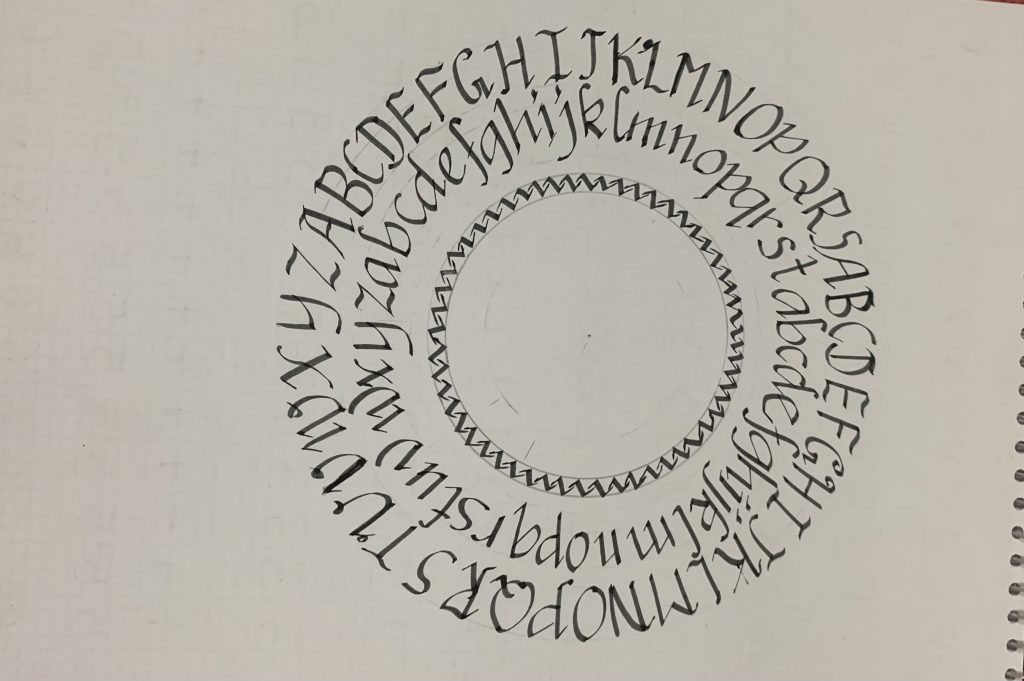 ABCDEFGHIJKLMNOPQRSABCDEFGHIJKLMNOPQRSTUVWXYZ
abcdefghijklmnopqrstabcdefghijklmnopqrstuvwxyz